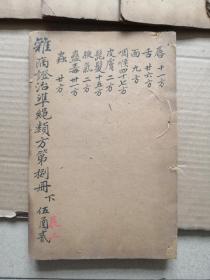 唇 十一方
舌 廿六方
面 九方
咽喉 四十七方
皮膚 二方
髭髮 十五方
腋氣 二方
蠱毒 卅一方
蟲 廿方
雜病證治準繩類方第捌冊 下